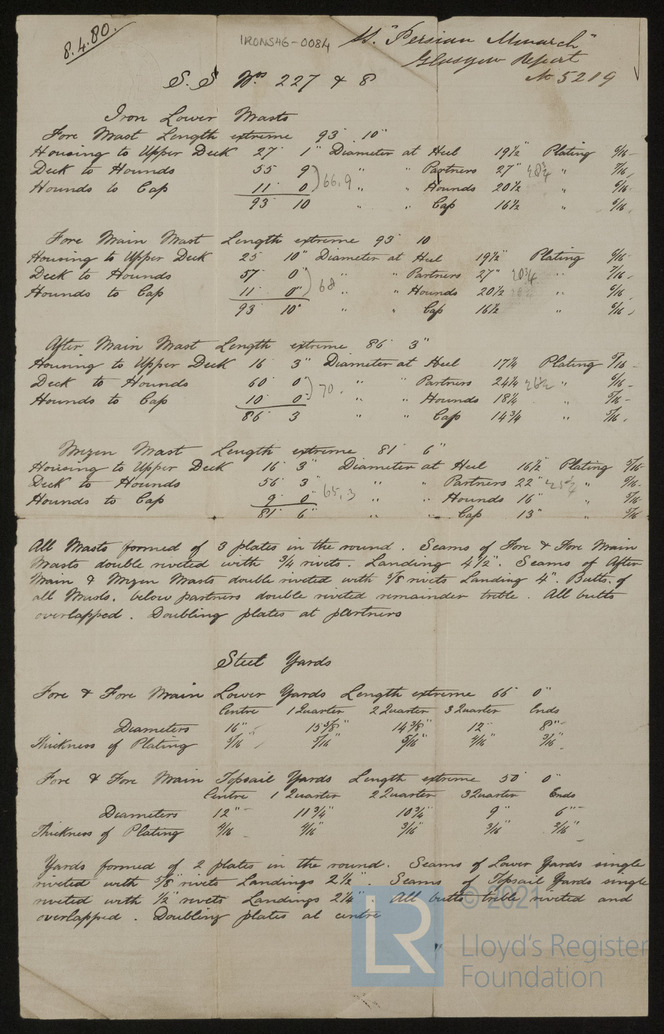 8.4.80.
IRON546-0084
"Persian Monarch"
Glasgow Report
No 5219
S.S Nos 227 & 8
Iron Lower Masts
Fore Mast Length extreme 93' 10"
Housing to Upper Deck 27' 1" Diameter at Heel 19½" Plating 6/16
Deck to Hounds 55 9 66.9 " " Partners 27" 7/16
Hounds to Cap 11 0 " " Hounds 20½ 6/16
93 10 " " Cap 16½ " 6/16
Fore Main Mast Length extreme 93 10
Housing to Upper Deck 25 10" Diameter at Heel 19½" Plating 6/16
Deck to Hounds 57 0" 68 " " Partners 27" " 7/16
Hounds to Cap 11 0" " " Hounds 20½ " 6/16
93 10" " " Cap 16½ " 6/16
After Main Mast Length extreme 86' 3"
Housing to Upper Deck 16 3" Diameter at Heel 17¼ Plating 5/16
Deck to Hounds 60 0" 70. " " Partners 24¼ " 6/16
Hounds to Cap 10 0 " " Hounds 18¼ " 5/16
86 3 " " Cap 14¾ " 5/16
Mizen Mast Length extreme 81' 6"
Housing to Upper Deck 16' 3" Diameter at Heel 16½" Plating 5/16
Deck to Hounds 56 3 65,3 " " Partners 22" " 6/16
Hounds to Cap 9 0 " " Hounds 16" " 5/16
81 6" " " Cap 13" " 5/16
All Masts formed of 3 plates in the round. Seams of Fore & Fore Main
Masts double riveted with ¾ rivets. Landing 4½". Seams of After
Main & Mizen Masts double riveted with 5/8 rivets Landing 4". Butts of
all Masts, below partners double riveted remainder treble. All butts
overlapped. Doubling plates at partners
Steel Yards
Fore & Fore Main Lower Yards Length extreme 66' 0"
Centre 1 Quarter 2 Quarter 3 Quarter Ends
Diameters 16" 15 3/8" 14 3/8" 12" 8"
Thickness of Plating 5/16 5/16" 5/16" 4/16" 3/16"
Fore & Fore Main Topsail Yards Length extreme 50' 0"
Centre 1 Quarter 2 Quarter 3 Quarter Ends
Diameters 12" 11¾" 10¾" 9" 6"
Thickness of Plating 4/16 4/16" 3/16" 3/16" 2/16"
Yards formed of 2 plates in the round. Seams of Lower Yards single
riveted with 5/8" rivets Landings 2½". Seams of Topsail Yards single
riveted with ½" rivets Landings 2¼" All butts treble riveted and
overlapped. Doubling plates at centre
© 2021
LR
Lloyd's Register
Foundation